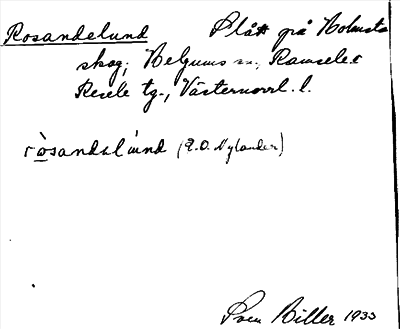 Rosandelund Slått på Holmsta
skog; Helgums sn., Ramsele o
Resele tg., Västernorrl. l.
ròsandəlùnd (E.O. Nylander)
Sven Biller 1933